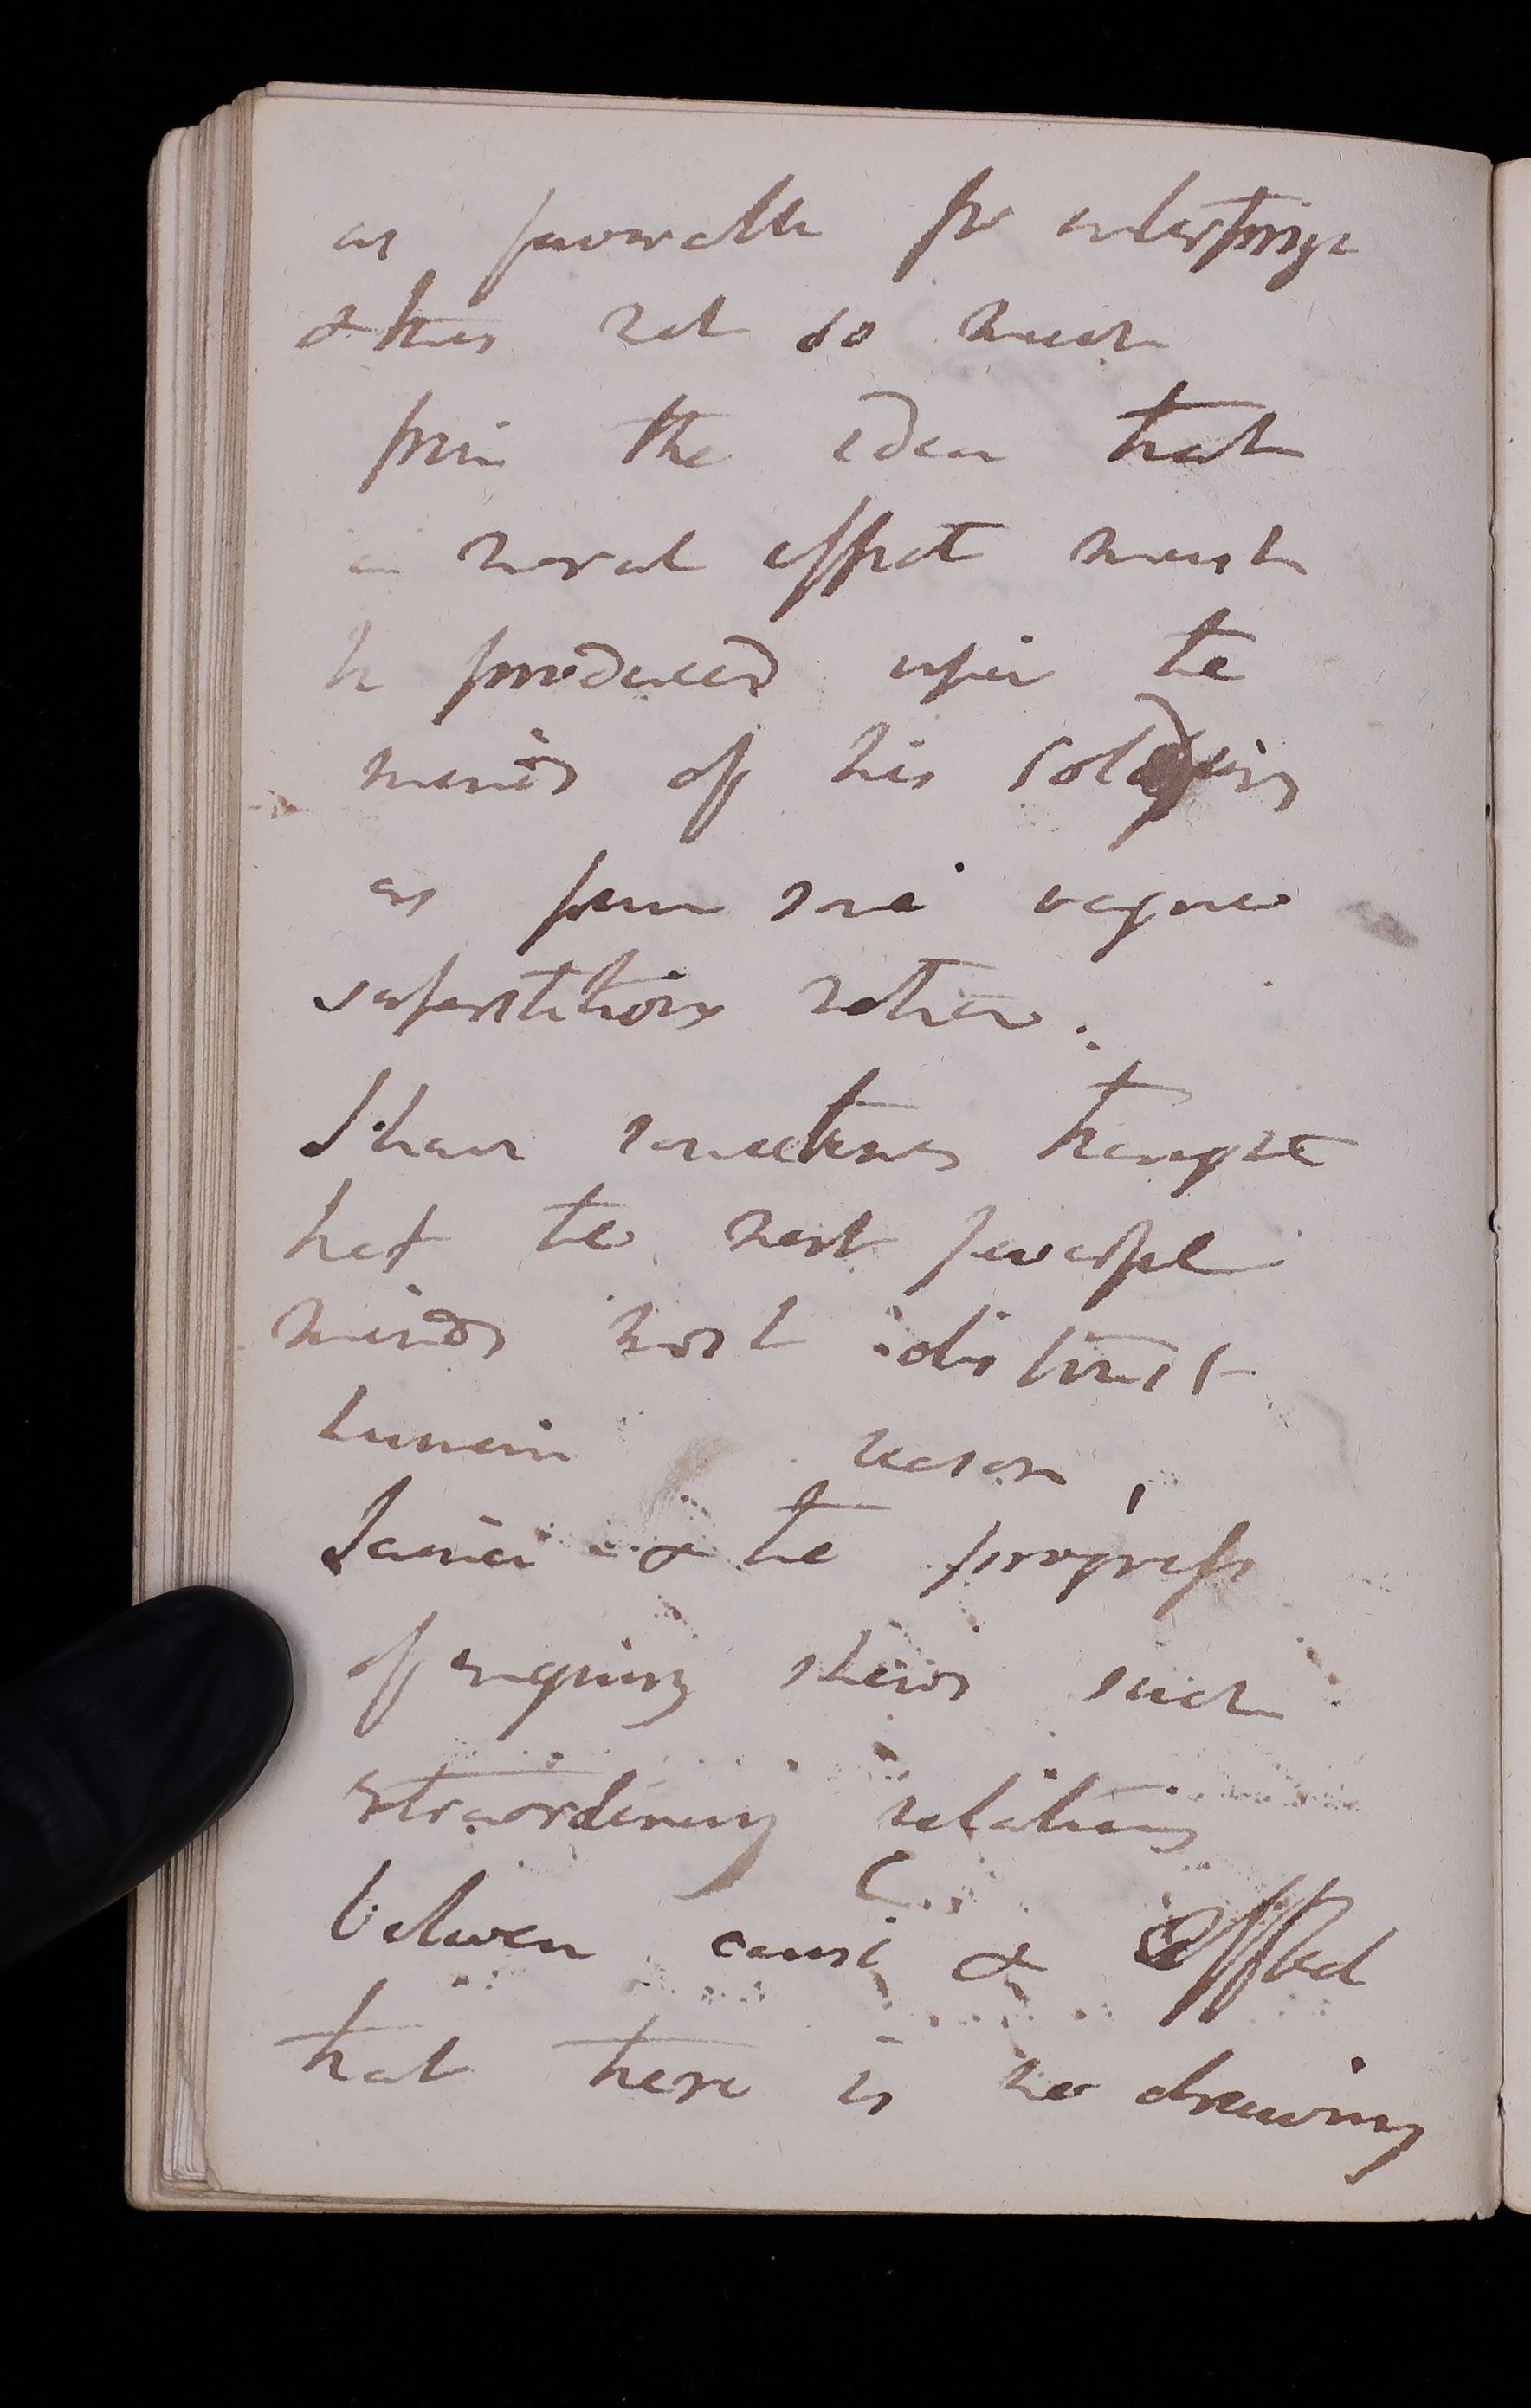 as favorable for enterprize
& this not so much
from the idea that
a moral effect must
be produced upon the
minds of his soldiers
as from some vague
superstitious notion.
I have sometimes thought
that the most powerful
minds most distrust
human reason,
& the progress
of enquiry shews such
extraordinary relations
between cause & effect
that there is no drawing